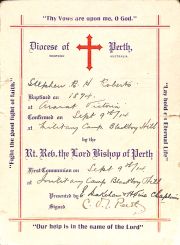 "Thy Vows are upon me, O God."
Diocese of Perth,
WESTERN AUSTRALIA
Stephen C. H. Roberts
Baptised on
1894.
at Ararat Victoria
Confirmed on Sept 9th/14
at Military Camp Blackboy Hill
by the
Rt. Rev. the Lord Bishop of Perth
First Communion on Sept 9th/14
at Military Camp Blackboy Hill
Presented by
Chaplain
Signed C. O. L. Perth
"Fight the good fight of faith"
"Our help is in the name of the Lord"